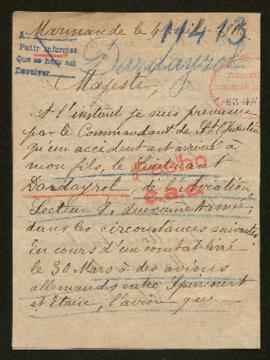 Marmande le 4
11413
A:
Pedir informes
Que se hizo así
Devolver
Dardayrol
Majesté,
A l'instant je suis prévenu
par le Commandant de
qu'un accident est arrivé à
mon fils, le Lieutenant
Recibo
Dardayrol, de l'Aviation
Secteur 8, deuxième Armée,
dans les circonstances suivantes:
En cours d'un combat livré
le 30 Mars à des avions
allemands entre Spincourt
et Etain, l'avion que